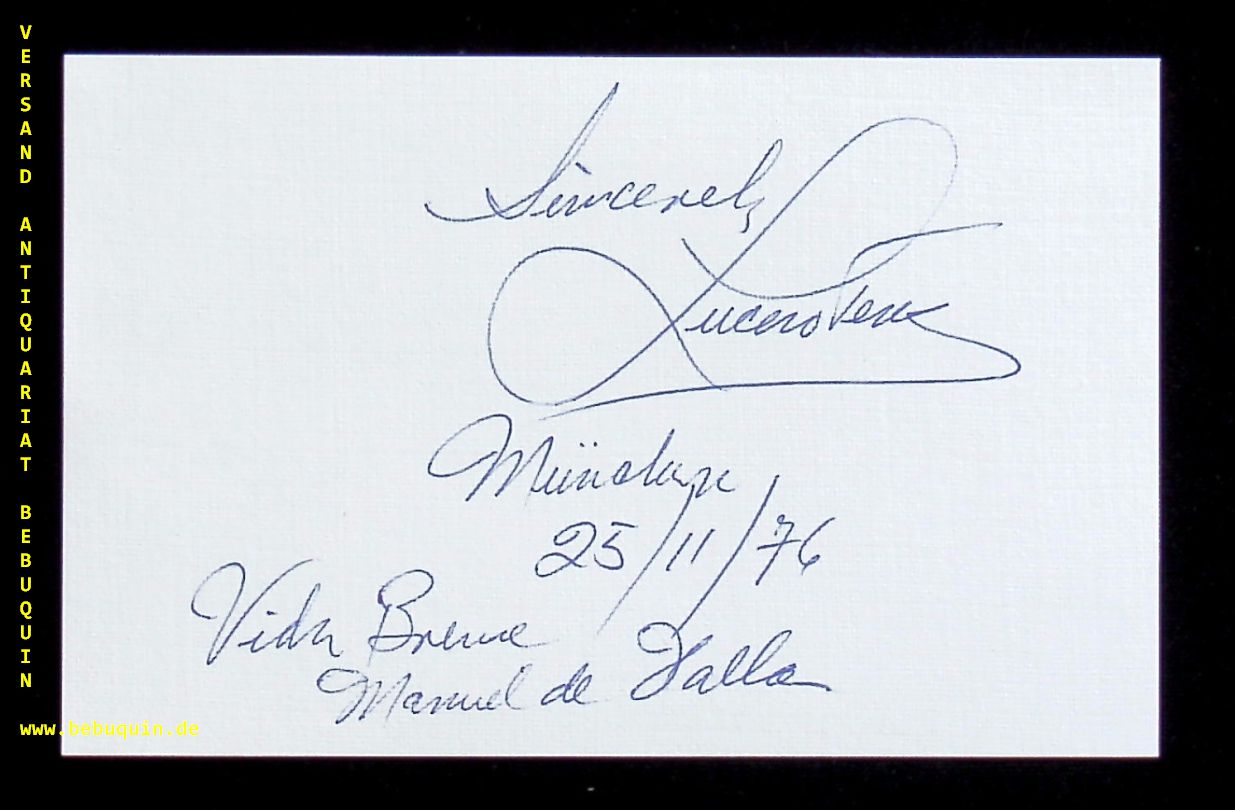 VERSAND ANTIQUARIAT BEBUQUIN
Sincerely
Lucero Tena
München
25/11/76
Vida Breve
Manuel de Falla
www.bebuquin.de